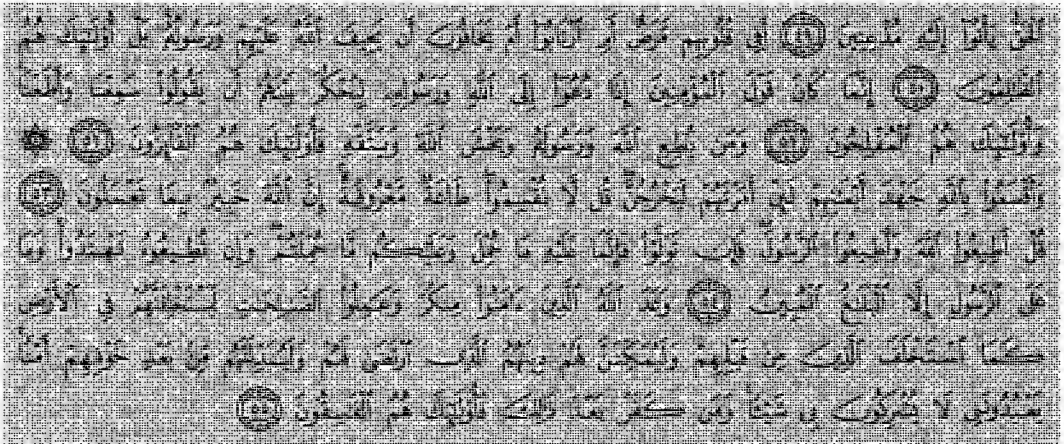 ٱلْحَقُّ يَأْتُوٓا۟ إِلَيْهِ مُذْعِنِينَ ٤٩ أَفِى قُلُوبِهِم مَّرَضٌ أَمِ ٱرْتَابُوٓا۟ أَمْ يَخَافُونَ أَن يَحِيفَ ٱللَّهُ عَلَيْهِمْ وَرَسُولُهُۥ بَلْ أُو۟لَٰٓئِكَ هُمُ
ٱلظَّٰلِمُونَ ٥٠ إِنَّمَا كَانَ قَوْلَ ٱلْمُؤْمِنِينَ إِذَا دُعُوٓا۟ إِلَى ٱللَّهِ وَرَسُولِهِۦ لِيَحْكُمَ بَيْنَهُمْ أَن يَقُولُوا۟ سَمِعْنَا وَأَطَعْنَا
وَأُو۟لَٰٓئِكَ هُمُ ٱلْمُفْلِحُونَ ٥١ وَمَن يُطِعِ ٱللَّهَ وَرَسُولَهُۥ وَيَخْشَ ٱللَّهَ وَيَتَّقْهِ فَأُو۟لَٰٓئِكَ هُمُ ٱلْفَآئِزُونَ ٥٢ ۞
وَأَقْسَمُوا۟ بِٱللَّهِ جَهْدَ أَيْمَٰنِهِمْ لَئِنْ أَمَرْتَهُمْ لَيَخْرُجُنَّ قُل لَّا تُقْسِمُوا۟ طَاعَةٌ مَّعْرُوفَةٌ إِنَّ ٱللَّهَ خَبِيرٌۢ بِمَا تَعْمَلُونَ ٥٣
قُلْ أَطِيعُوا۟ ٱللَّهَ وَأَطِيعُوا۟ ٱلرَّسُولَ فَإِن تَوَلَّوْا۟ فَإِنَّمَا عَلَيْهِ مَا حُمِّلَ وَعَلَيْكُم مَّا حُمِّلْتُمْ وَإِن تُطِيعُوهُ تَهْتَدُوا۟ وَمَا
عَلَى ٱلرَّسُولِ إِلَّا ٱلْبَلَٰغُ ٱلْمُبِينُ ٥٤ وَعَدَ ٱللَّهُ ٱلَّذِينَ ءَامَنُوا۟ مِنكُمْ وَعَمِلُوا۟ ٱلصَّٰلِحَٰتِ لَيَسْتَخْلِفَنَّهُمْ فِى ٱلْأَرْضِ
كَمَا ٱسْتَخْلَفَ ٱلَّذِينَ مِن قَبْلِهِمْ وَلَيُمَكِّنَنَّ لَهُمْ دِينَهُمُ ٱلَّذِى ٱرْتَضَىٰ لَهُمْ وَلَيُبَدِّلَنَّهُم مِّنۢ بَعْدِ خَوْفِهِمْ أَمْنًا
يَعْبُدُونَنِى لَا يُشْرِكُونَ بِى شَيْـًٔا وَمَن كَفَرَ بَعْدَ ذَٰلِكَ فَأُو۟لَٰٓئِكَ هُمُ ٱلْفَٰسِقُونَ ٥٥